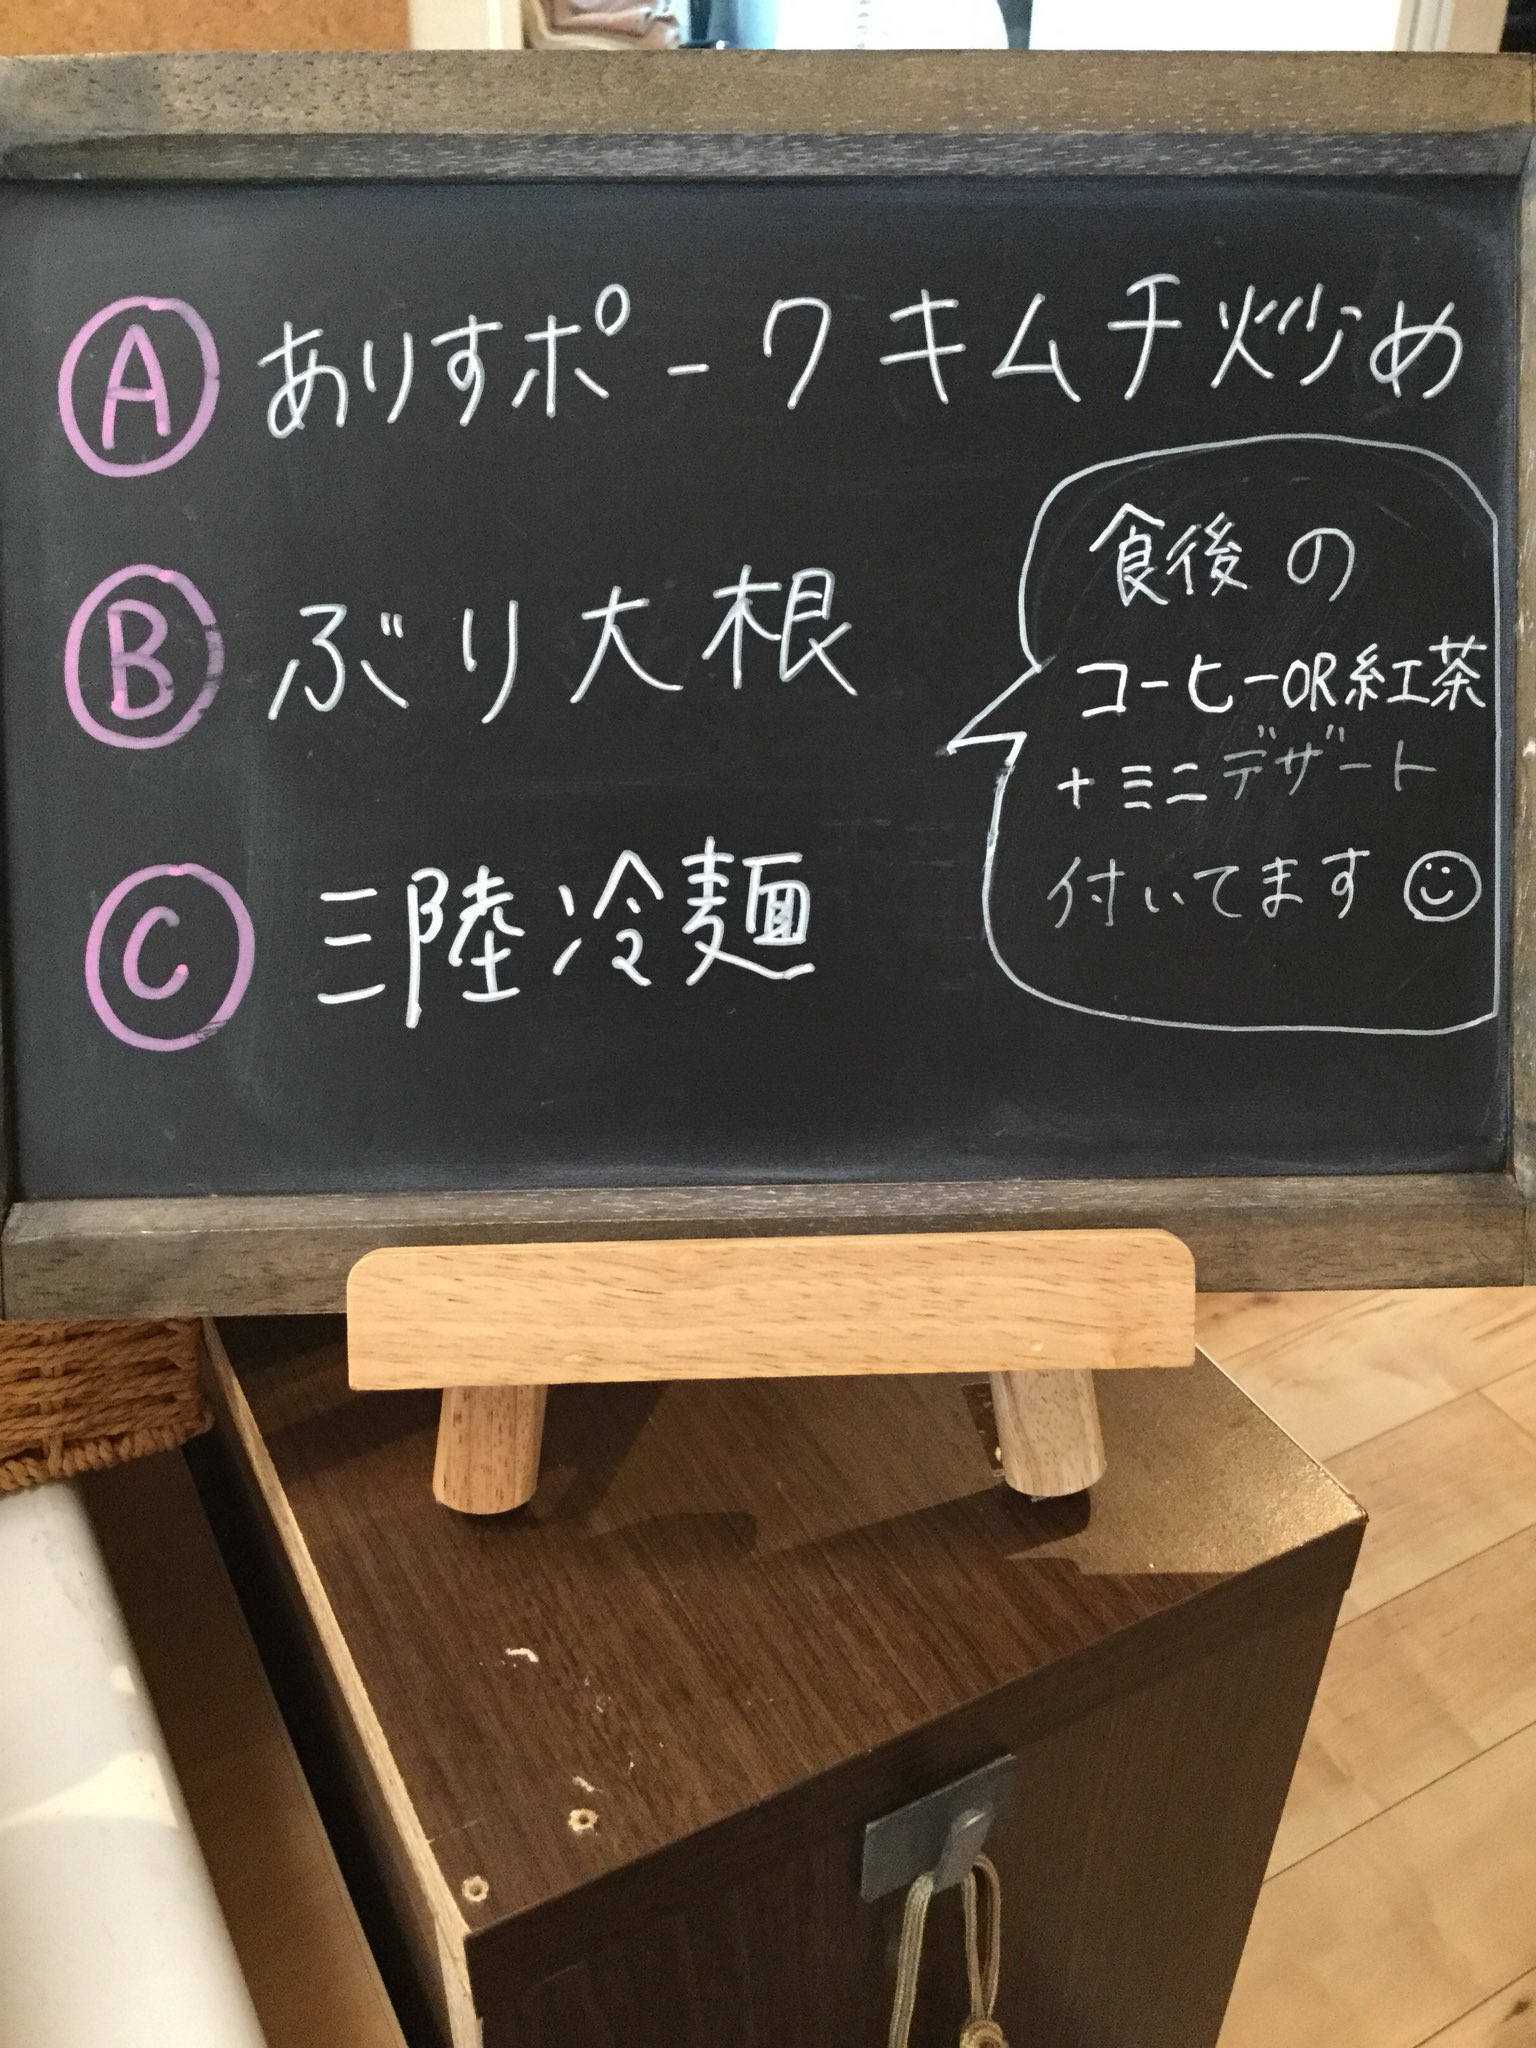 Ⓐ ありすポークキムチ炒め
Ⓑ ぶり大根
Ⓒ 三陸冷麺
食後の
コーヒーOR紅茶
+ミニデザート
付いてます☺